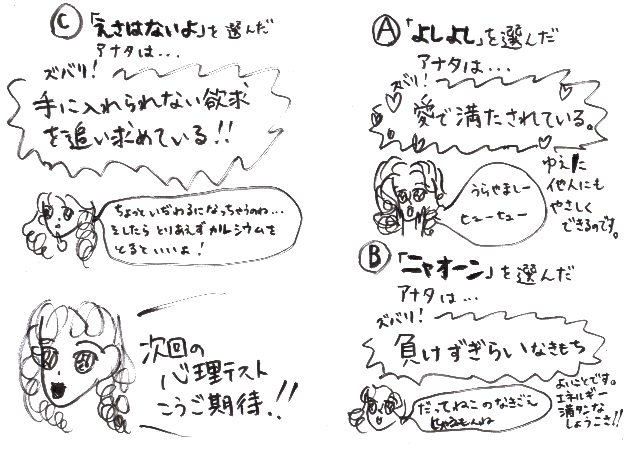 Ⓐ「よしよし」を選んだ
アナタは...
ズバリ!
愛で満たされている。
うらやましー
ヒューヒュー
ゆえに
他人にも
やさしく
できるのです。
Ⓑ「ニャオーン」を選んだ
アナタは...
ズバリ!
負けずぎらいなきもち
だってねこのなきごえ
じゃもんね
よいことです。
エネルギー
満タンな
しょうこさ!!
Ⓒ「えさはないよ」を選んだ
アナタは...
ズバリ!
手に入れられない欲求
を追い求めている!!
ちょっといぢわるになっちゃうのね...
そしたらとりあえずカルシウムを
とるといいよ!
次回の
心理テスト
こうご期待!!